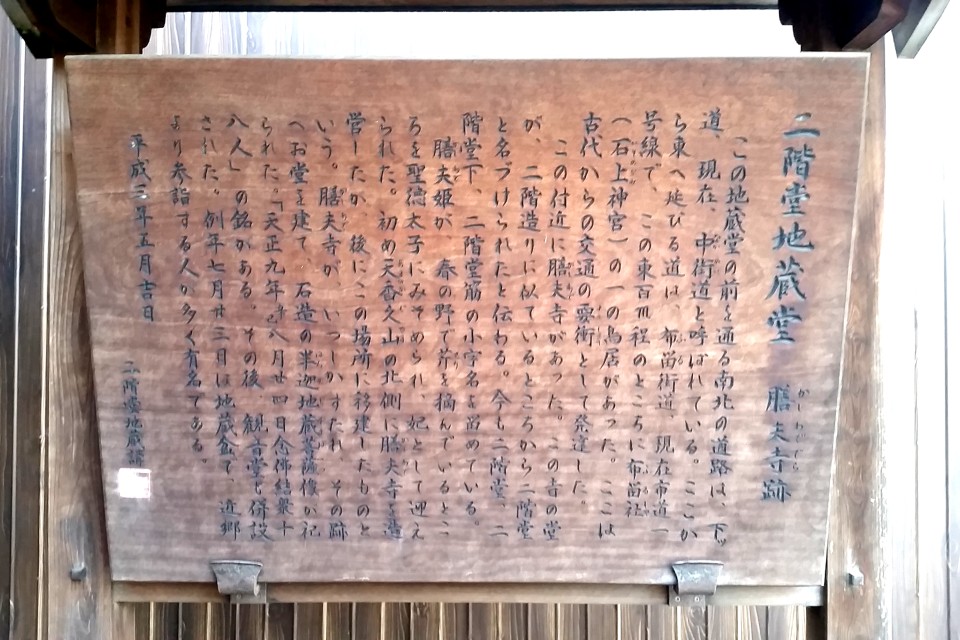 二階堂地蔵堂 膳夫寺跡
この地蔵堂の前を通る南北の道路は、下ッ
道、現在、中街道と呼ばれている。ここか
ら東へ延びる道は、布留街道、現在市道一
号線で、この東百m程のところに布留社
(石上神宮)の一の鳥居があった。ここは
古代からの交通の要衝として発達した。
この付近に膳夫寺があった。この寺の堂
が、二階造りに似ているところから二階堂
と名づけられたと伝わる。今も二階堂、二
階堂下、二階堂筋の小字名を留めている。
膳夫姫が、春の野で芹を摘んでいるとこ
ろを聖徳太子にみそめられ、妃として迎え
られた。初め天香久山の北側に膳夫寺を造
営したが、後にこの場所に移建したものと
いう。膳夫寺が、いつしかすたれ、その跡
へお堂を建て、石造の半迦地蔵菩薩像が祀
られた。「天正九年 八月廿四日念佛結衆十
八人」の銘がある。その後、観音堂も併設
された。例年七月廿三日は地蔵盆で、近郷
より参詣する人が多く有名である。
平成三年五月吉日
二階堂地蔵講